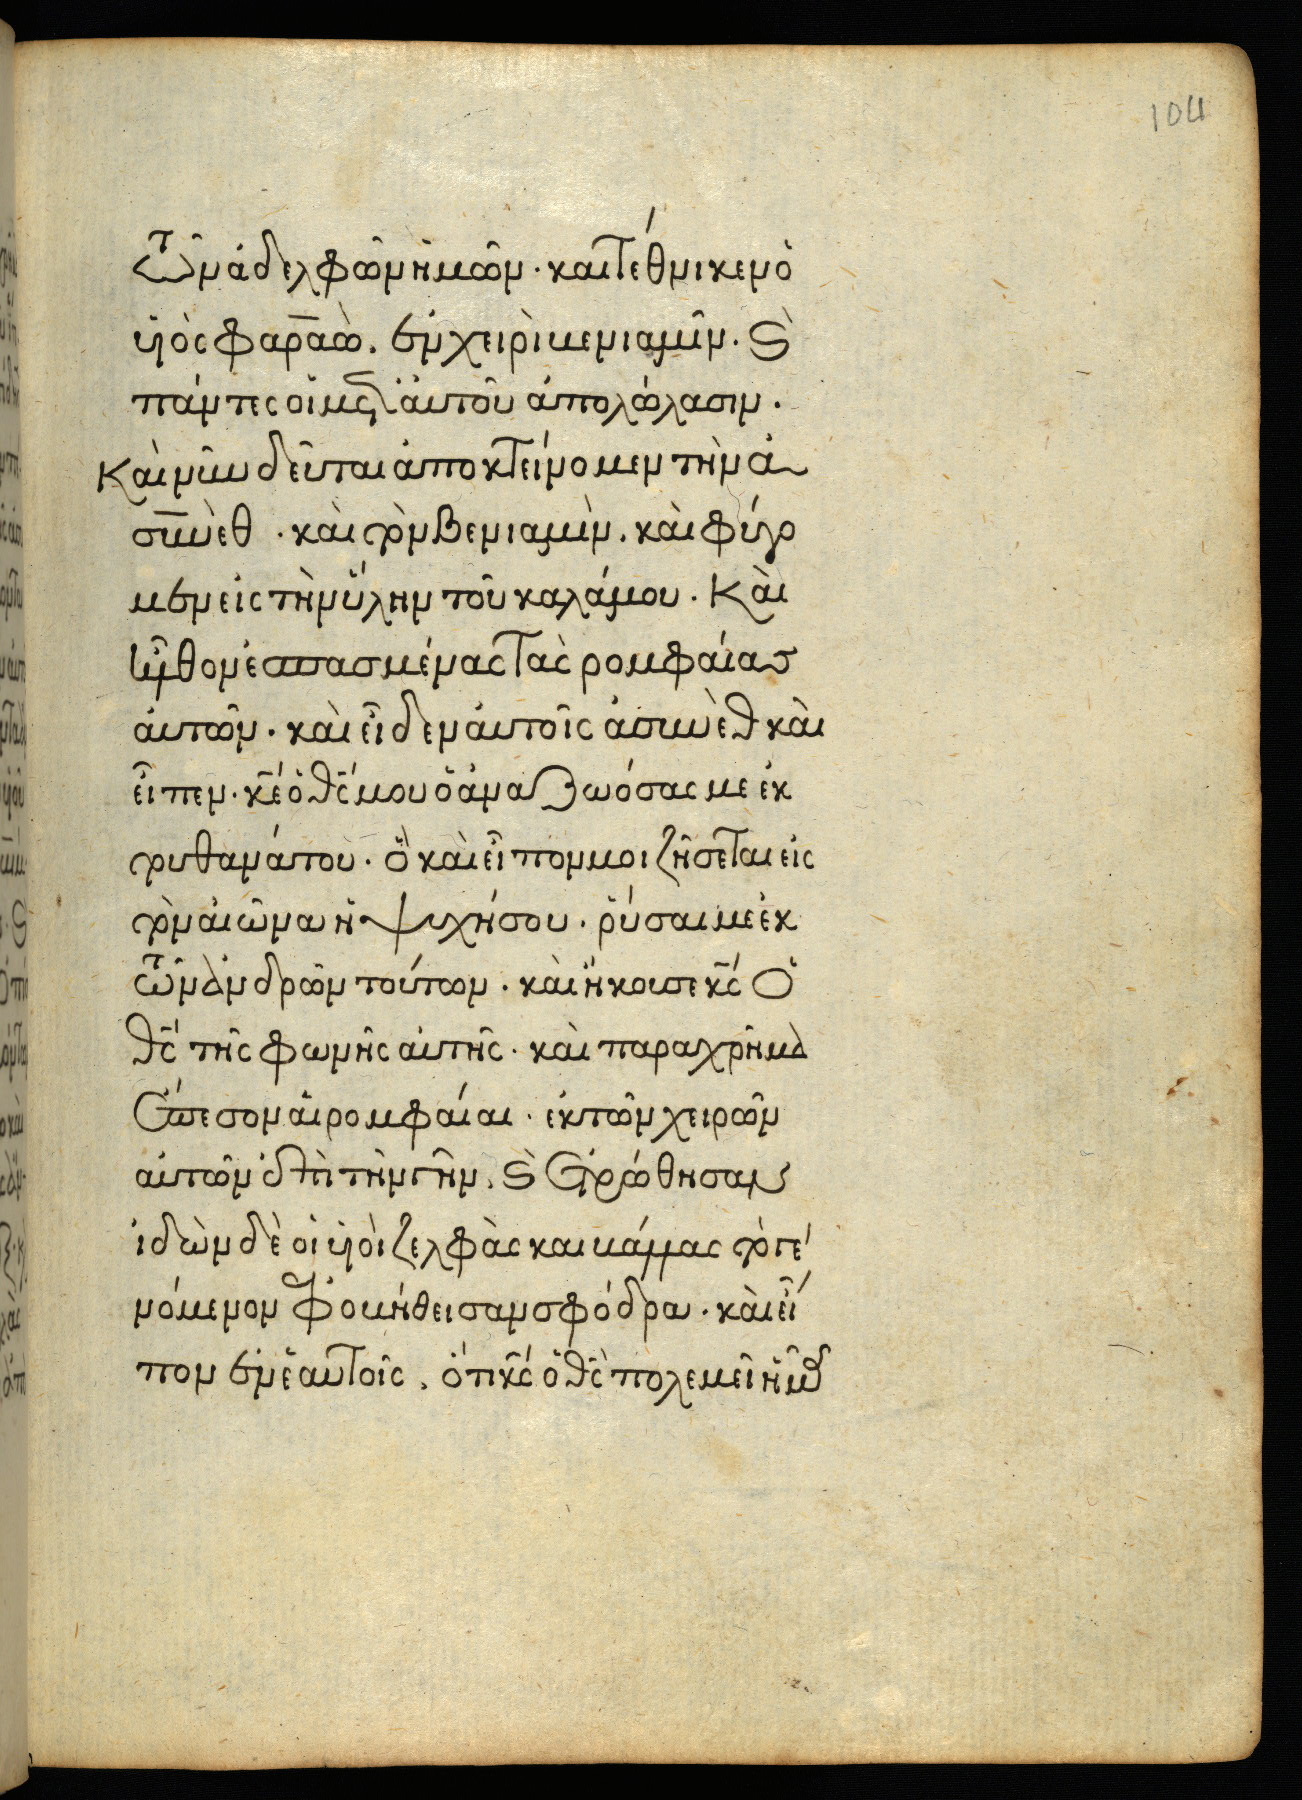 104
τῶν ἀδελφῶν ἡμῶν · καὶ τέθνικεν ὁ
υἱὸς φαραὼ . ἐν χειρὶ κενιαμὶν . καὶ
πάντες οἱ μετ' αὐτοῦ ἀπολώλασιν .
Καὶ νῦν δεῦται ἀποκτείνομεν τὴν ἀ
συνὲθ · καὶ τὸν Βενιαμὶν . καὶ φύγο
μεν εἰς τὴν ὕλην τοῦ καλάμου . Καὶ
ἦλθον ἐσπασμένας τὰς ρομφαίας
αὐτῶν . καὶ εἶδεν αὐτοῖς ἀσυνὲθ καὶ
εἶπεν . κέ ὁ θς μου ὁ ἀναζωόσας με ἐκ
του θανάτου . ὁ καὶ εἶπον μοι ζήσεται εἰς
τὸν αἰῶνα ἡ ψυχή σου . ῥύσαι με ἐκ
τῶν ἀνδρῶν τούτων . καὶ ἤκουσε κς Ὁ
θς τῆς φωνῆς αὐτῆς . καὶ παραχρῆμα
ἔπεσον αἱ ρομφαίαι . ἐκ τῶν χειρῶν
αὐτῶν ἐπὶ τὴν γῆν . καὶ ἐτεφρώθησαν
ἰδὼν δὲ οἱ υἱοὶ ζελφὰς και κάμμας τὸ γε
νόμενον ἐφοβήθεισαν σφόδρα . καὶ εἶ
πον ἐν ἑαυτοῖς . ὅτι κς ὁ θς πολεμεῖ ἡμᾶς